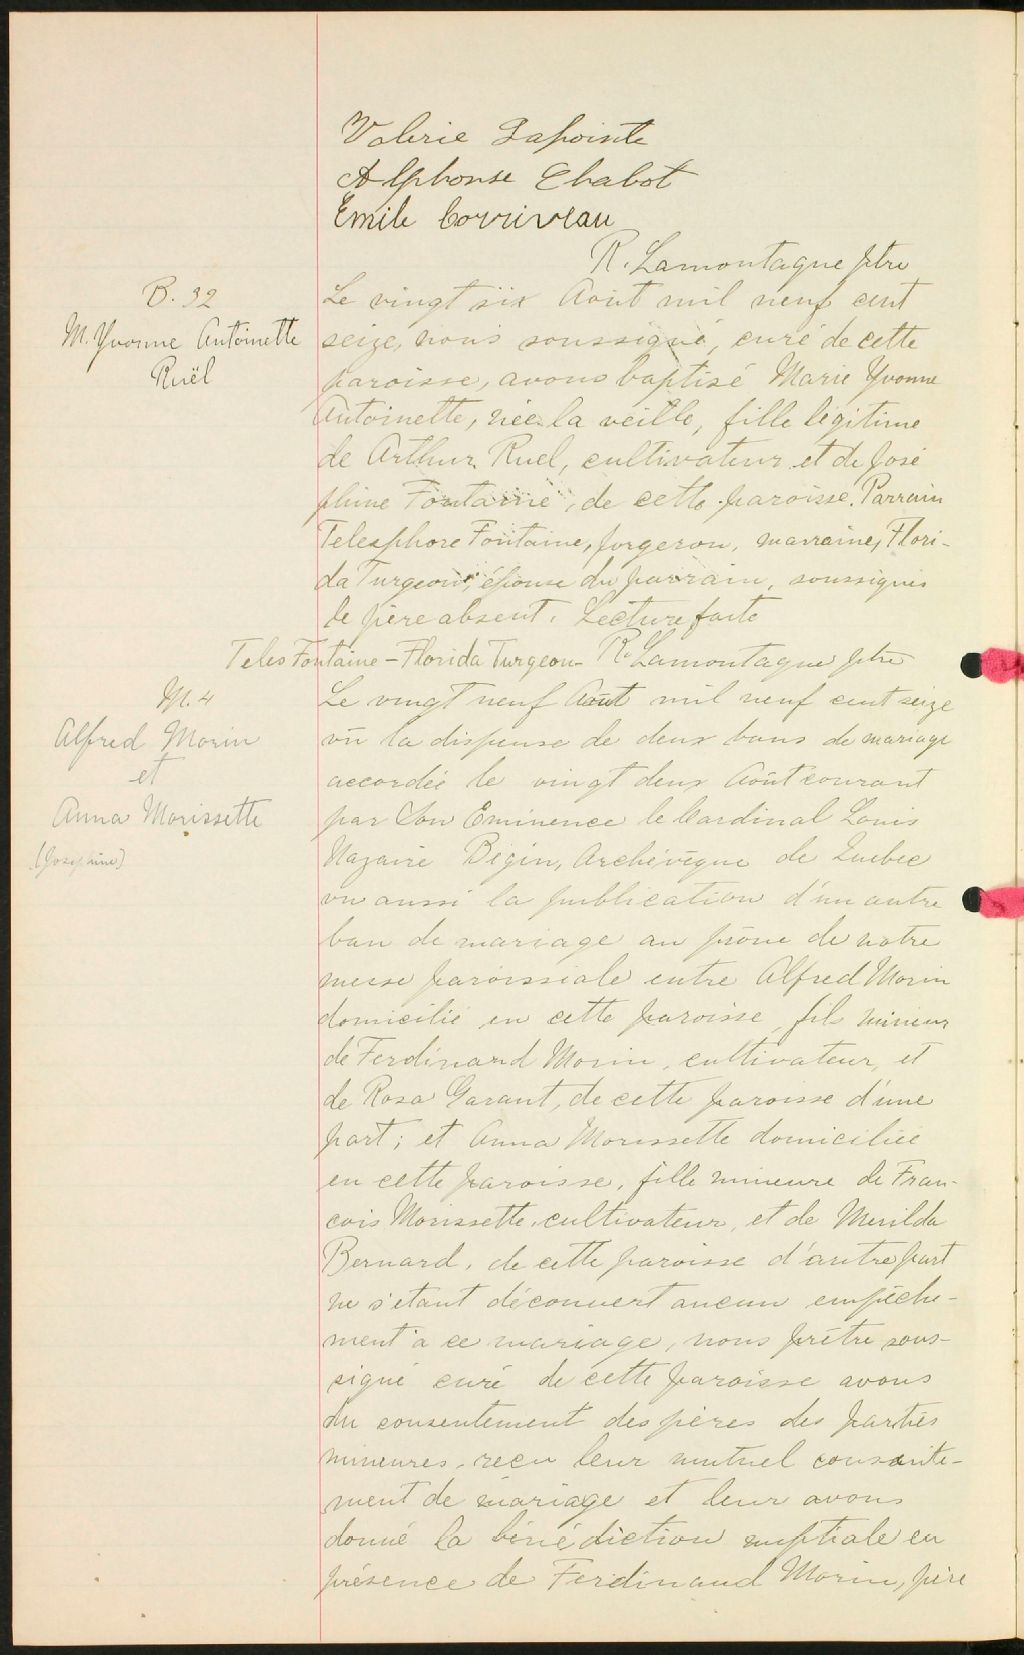 Valerie Lapointe
Alphonse Chabot
Emile Corriveau
R. Lamontagne ptre
B. 32
M. Yvonne Antoinette
Ruël
Le vingt six Août mil neuf cent
seize, nous soussigné, curé de cette
paroisse, avons baptisé Marie Yvonne
Antoinette, née la veille, fille légitime
de Arthur Ruel, cultivateur et de José
phine Fontaine, de cette paroisse. Parrain
Telesphore Fontaine, forgeron, marraine, Flori-
da Turgeon, épouse du parrain, soussignés
le père absent. Lecture faite
Teles Fontaine - Florida Turgeon - R. Lamontagne ptre
M. 4
Alfred Morin
et
Anna Morissette
(Josephine)
Le vingt neuf Août mil neuf cent seize
vû la dispense de deux bans de mariage
accordée le vingt deux Août courant
par Son Eminence le Cardinal Louis
Nazaire Bégin, Archévêque de Québec
vu aussi la publication d'un autre
ban de mariage au prône de notre
messe paroissiale entre Alfred Morin
domicilié en cette paroisse, fils mineur
de Ferdinand Morin, cultivateur, et
de Rosa Garant, de cette paroisse d'une
part; et Anna Morissette domiciliée
en cette paroisse, fille mineure de Fran-
cois Morissette, cultivateur, et de Merilda
Bernard, de cette paroisse d'autre part
ne s'étant découvert aucun empêche-
ment à ce mariage, nous prêtre sous-
signé curé de cette paroisse avons
du consentement des pères des parties
mineures, reçu leur mutuel consente-
ment de mariage et leur avons
donné la bénédiction nuptiale en
présence de Ferdinand Morin, père